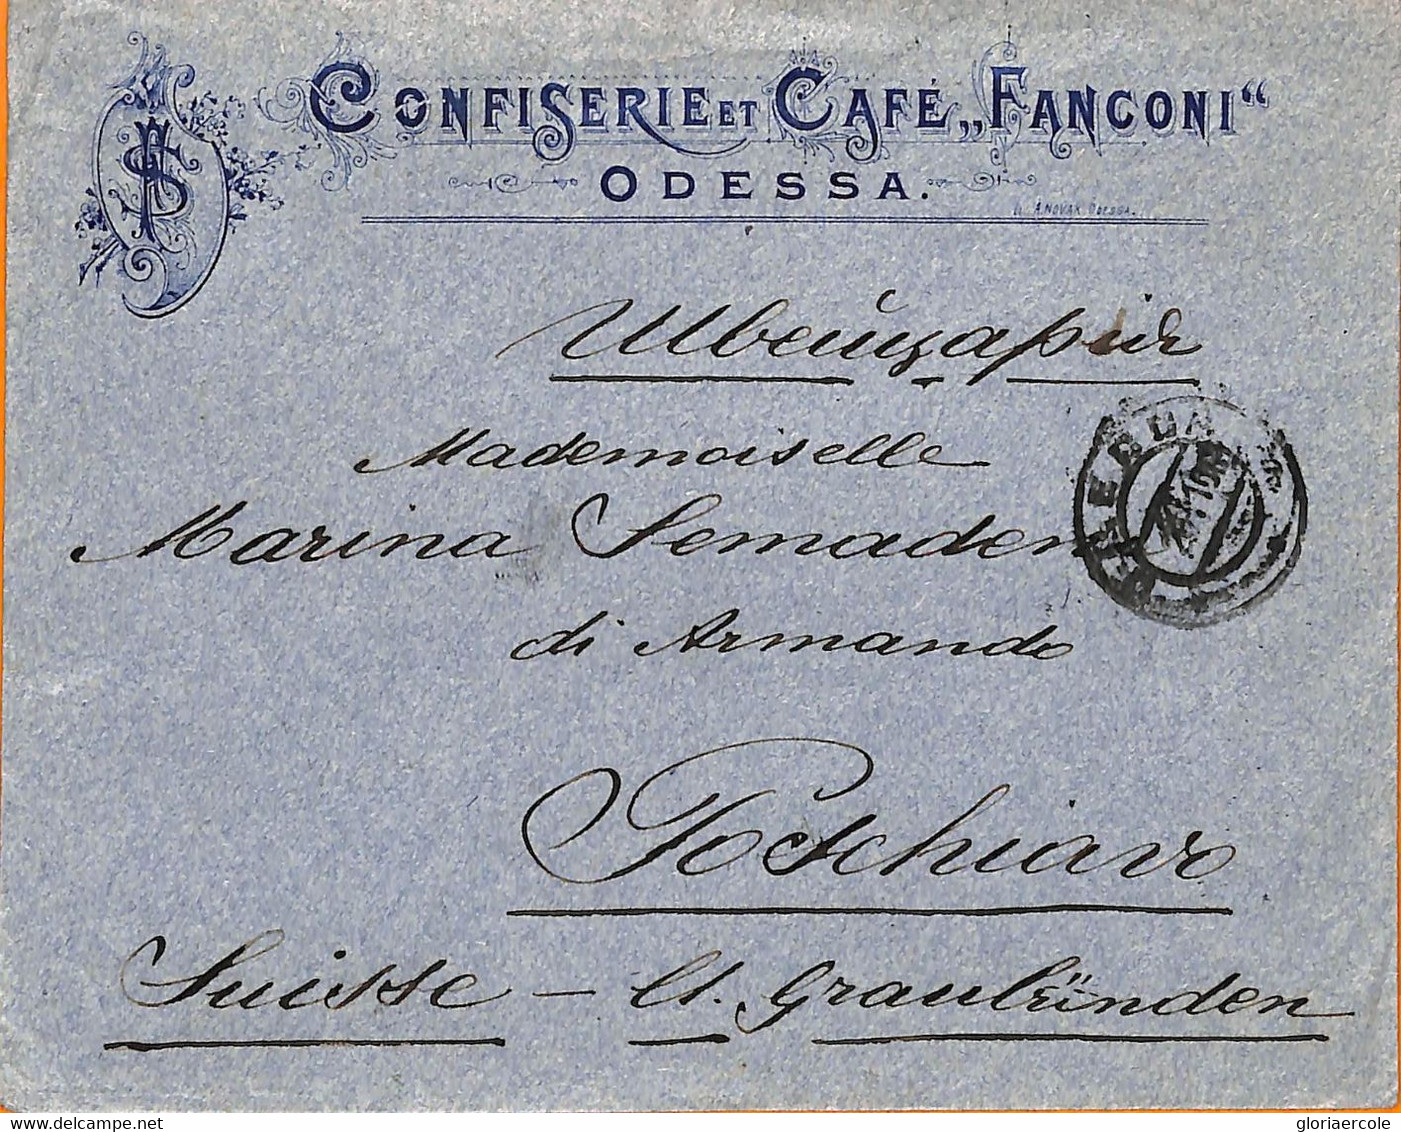 CONFISERIE ET CAFÉ „FANCONI“
ODESSA.
A. NOVAK ODESSA.
Швейцарія
Mademoiselle
Marina Semadeni
di Armando
Poschiavo
Suisse – Ct. Graubünden
delcampe.net
gloriaercole